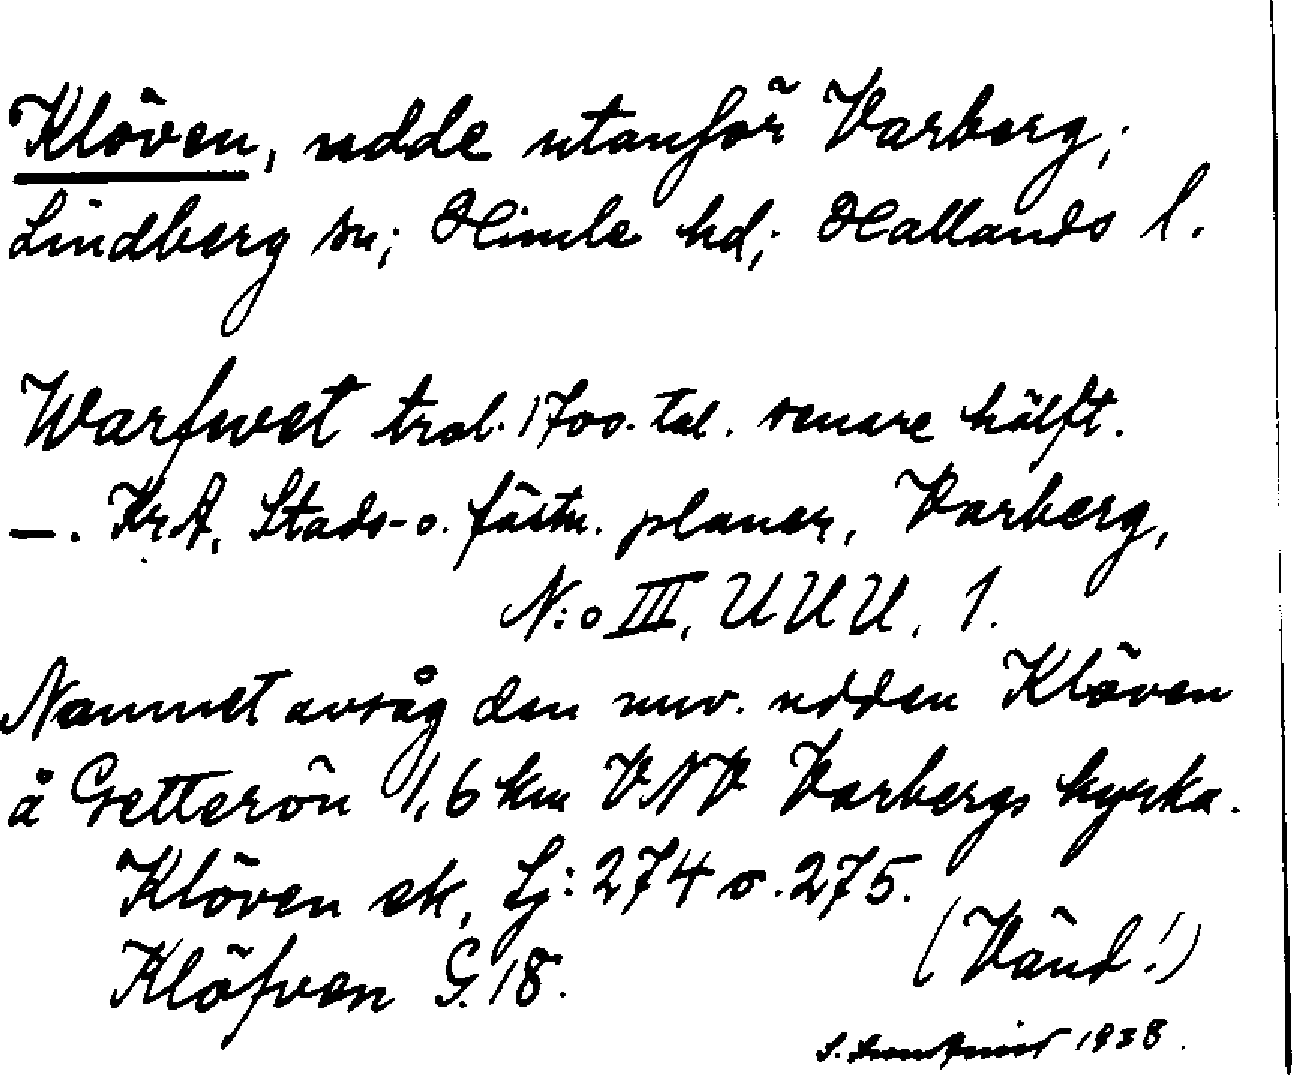 Klöven, udde utanför Varberg;
Lindberg sn; Himle hd; Hallands l.
Warfwet trol. 1700-tal. senare hälft.
—. KrA, Stads- o. fästn. planer, Varberg,
N:o III, UUU, 1.
Namnet avsåg den nuv. udden Klöven
å Getterön 1,6 km VNV Varbergs kyrka.
Klöven ek, Lj: 274 o. 275.
Klöfven G. 18.
(Vänd!)
S. 1938.